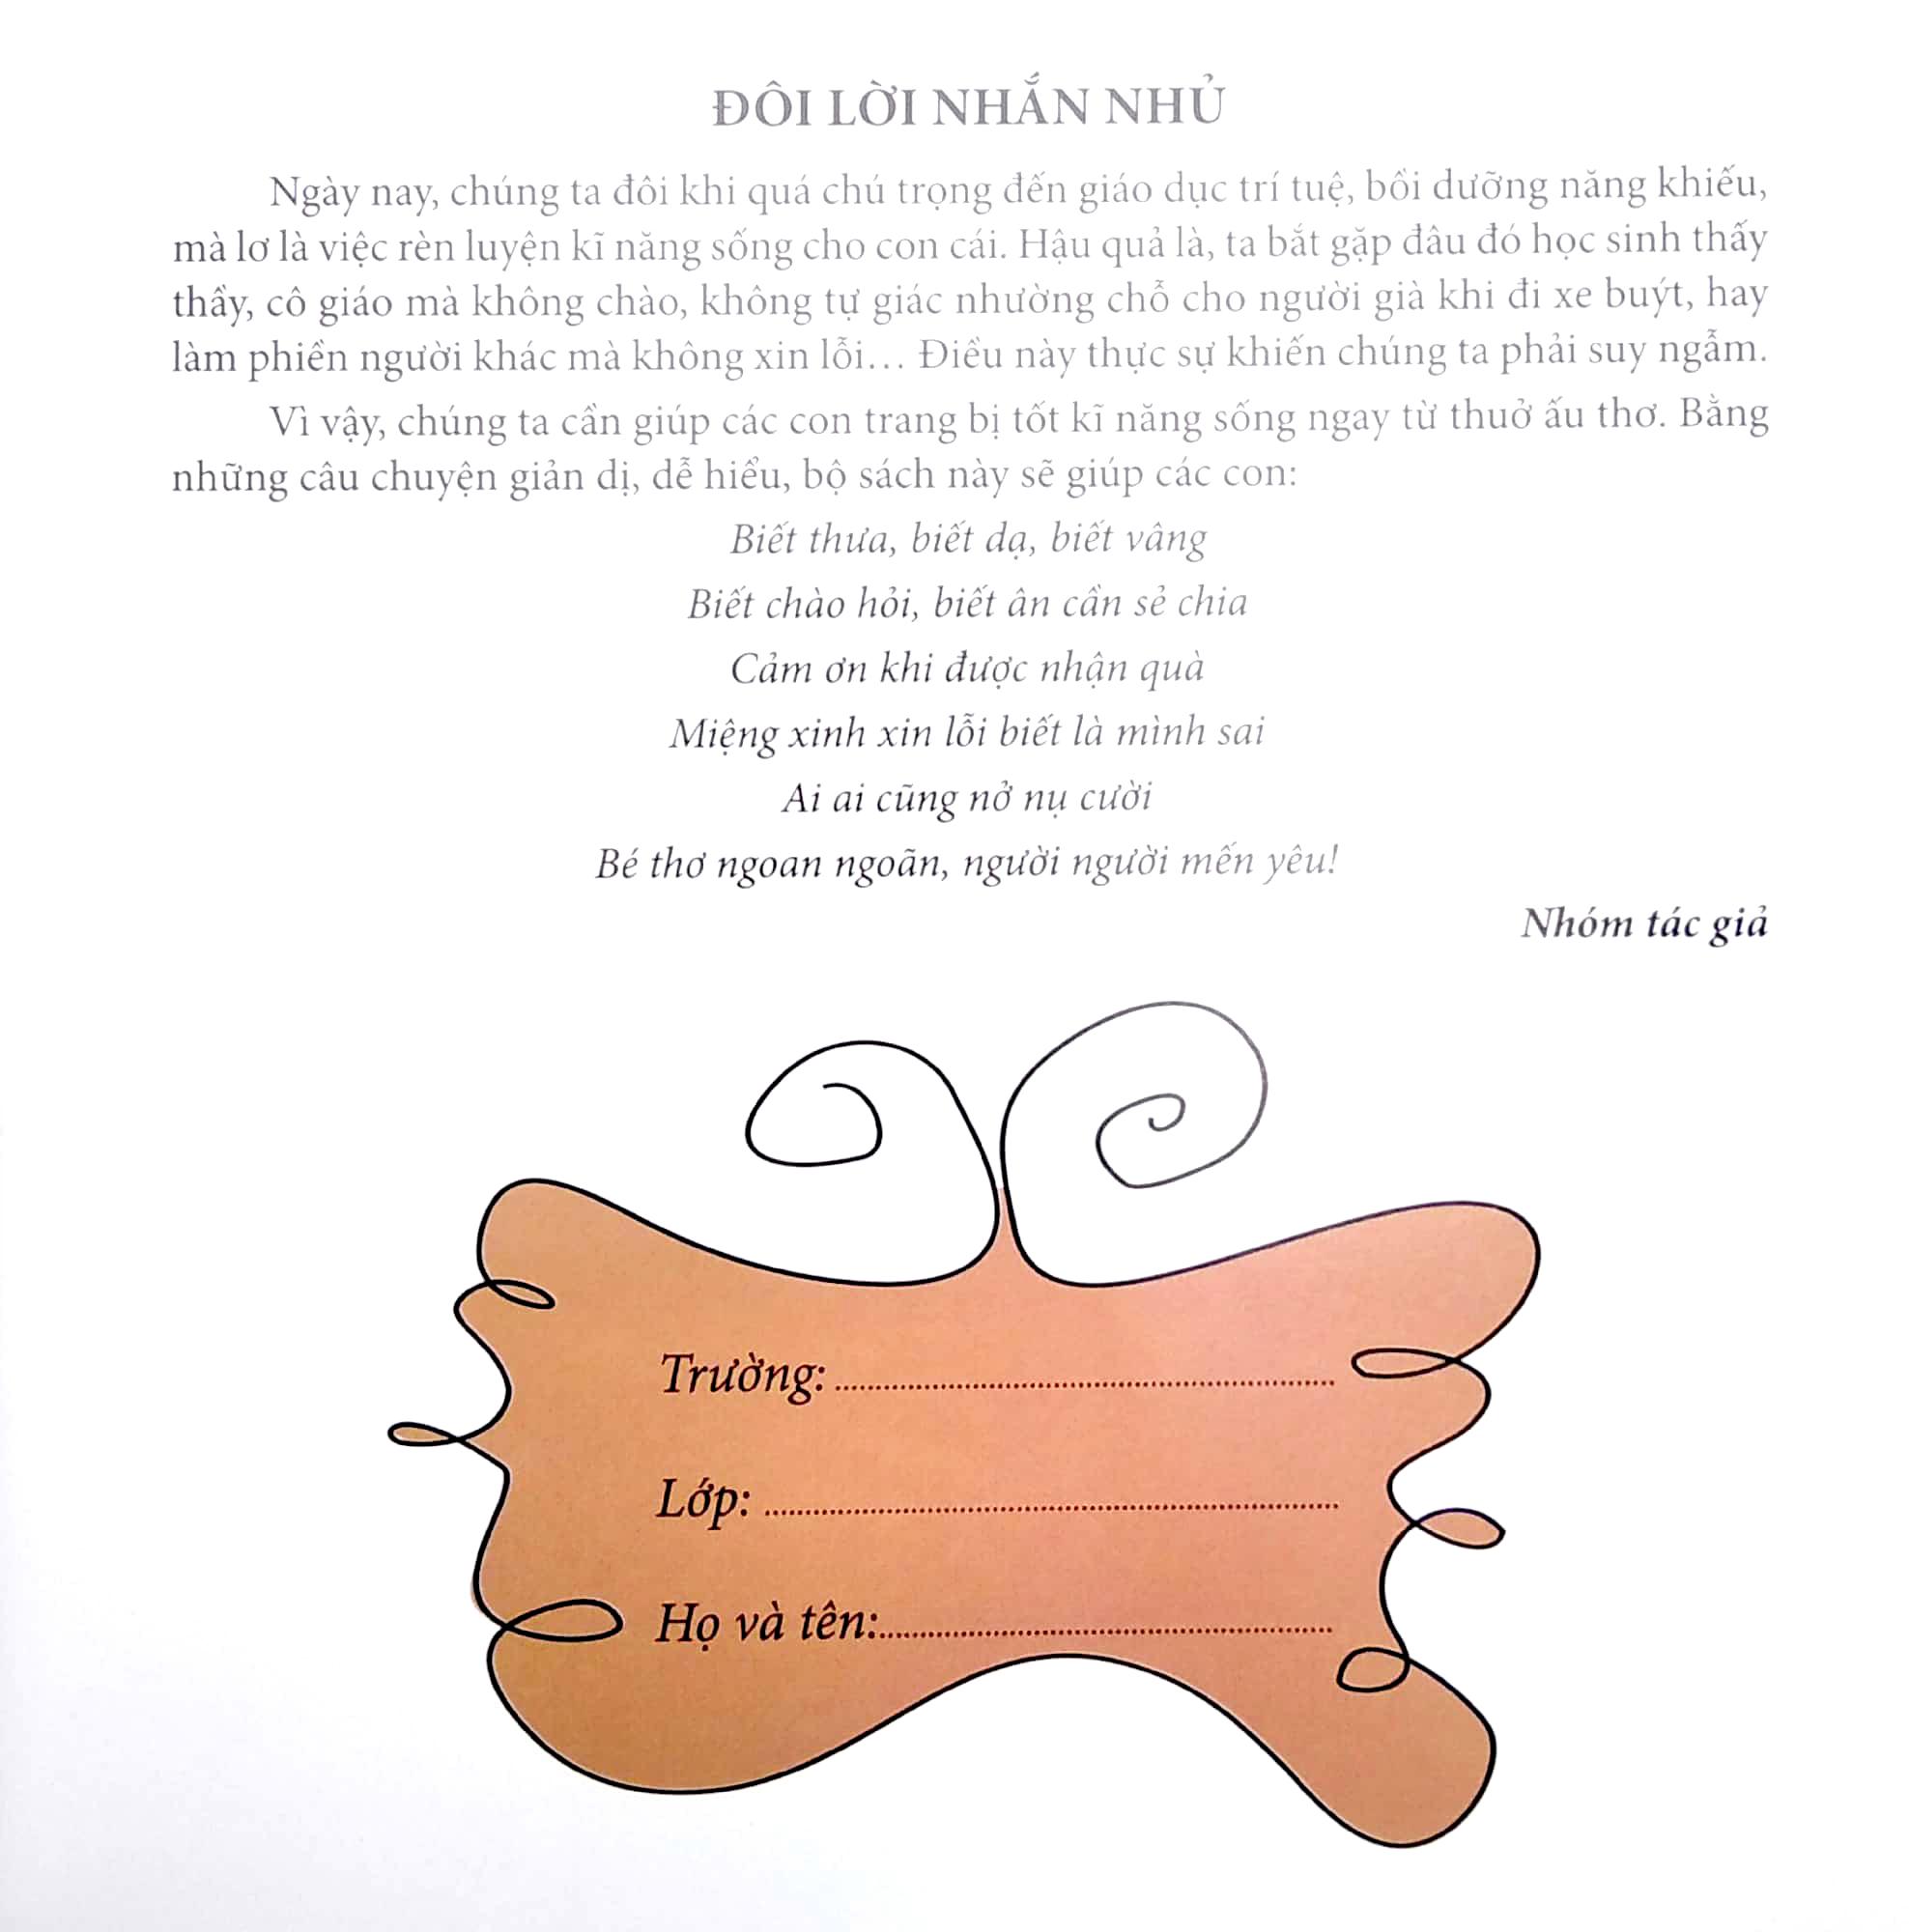 ĐÔI LỜI NHẮN NHỦ
Ngày nay, chúng ta đôi khi quá chú trọng đến giáo dục trí tuệ, bồi dưỡng năng khiếu,
mà lơ là việc rèn luyện kĩ năng sống cho con cái. Hậu quả là, ta bắt gặp đâu đó học sinh thấy
thầy, cô giáo mà không chào, không tự giác nhường chỗ cho người già khi đi xe buýt, hay
làm phiền người khác mà không xin lỗi... Điều này thực sự khiến chúng ta phải suy ngẫm.
Vì vậy, chúng ta cần giúp các con trang bị tốt kĩ năng sống ngay từ thuở ấu thơ. Bằng
những câu chuyện giản dị, dễ hiểu, bộ sách này sẽ giúp các con:
Biết thưa, biết dạ, biết vâng
Biết chào hỏi, biết ân cần sẻ chia
Cảm ơn khi được nhận quà
Miệng xinh xin lỗi biết là mình sai
Ai ai cũng nở nụ cười
Bé thơ ngoan ngoãn, người người mến yêu!
Nhóm tác giả
Trường: ................................................
Lớp: ................................................
Họ và tên:................................................